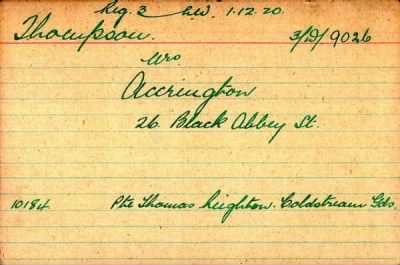 Reg. 3 C.W. 1.12.20.
Thompson. 3/D/9026
Mrs
Accrington
26. Black Abbey St.
10184 Pte Thomas Leighton. Coldstream Gds.